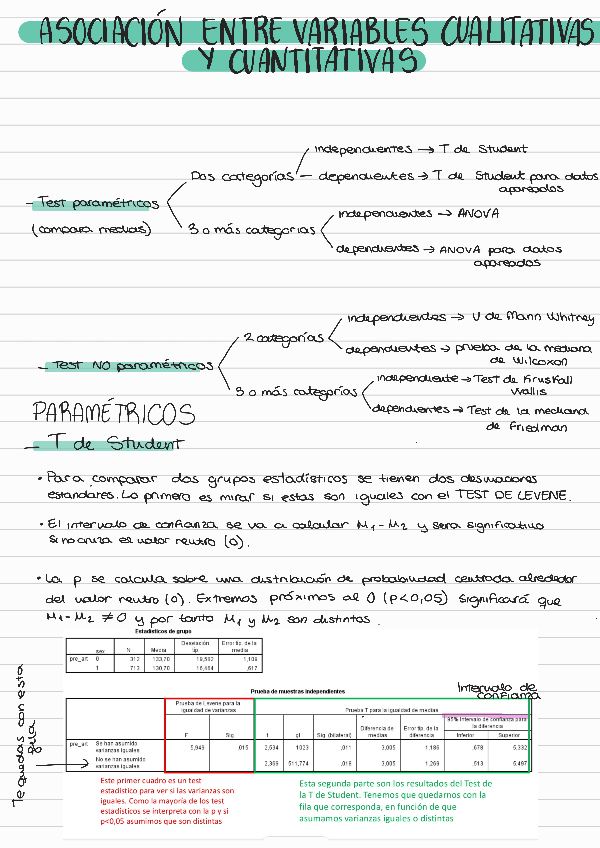 ASOCIACIÓN ENTRE VARIABLES CUALITATIVAS
Y CUANTITATIVAS
independientes → T de Student
Dos categorías
dependientes → T de Student para datos
apareados
- Test paramétricos
(compara medias)
3 o más categorías
independientes → ANOVA
dependientes → ANOVA para datos
apareados
independientes → U de Mann Whitney
2 categorías
dependientes → prueba de la mediana
de Wilcoxon
- Test NO paramétricos
3 o más categorías
independiente → Test de Kruskall
Wallis
dependientes → Test de la mediana
de Friedman
PARAMÉTRICOS
- T de Student
• Para comparar dos grupos estadísticos se tienen dos desviaciones
estandares. Lo primero es mirar si estas son iguales con el TEST DE LEVENE.
• El intervalo de confianza se va a calcular M1 - M2 y sera significativo
si no cruza el valor neutro (0).
• La p se calcula sobre una distribución de probabilidad centrada alrededor
del valor neutro (0). Extremos próximos al 0 (P<0,05) significará que
M1 - M2 ≠ 0 y por tanto M1 y M2 son distintos.
Estadísticos de grupo
sex N Media Desviación tip. Error tip. de la media
pre_art 0 312 133,70 19,582 1,109
1 713 130,70 16,464 ,617
Prueba de muestras independientes
Intervalo de
confianza
Prueba de Levene para la igualdad de varianzas Prueba T para la igualdad de medias
95% Intervalo de confianza para la diferencia
F Sig. t gl Sig. (bilateral) Diferencia de medias Error tip. de la diferencia Inferior Superior
pre_art Se han asumido varianzas iguales 5,949 ,015 2,534 1023 ,011 3,005 1,186 ,678 5,332
No se han asumido varianzas iguales 2,368 511,774 ,018 3,005 1,269 ,513 5,497
Te quedas con esta
fila
Este primer cuadro es un test
estadístico para ver si las varianzas son
iguales. Como la mayoría de los test
estadísticos se interpreta con la p y si
p<0,05 asumimos que son distintas
Esta segunda parte son los resultados del Test de
la T de Student. Tenemos que quedarnos con la
fila que corresponda, en función de que
asumamos varianzas iguales o distintas